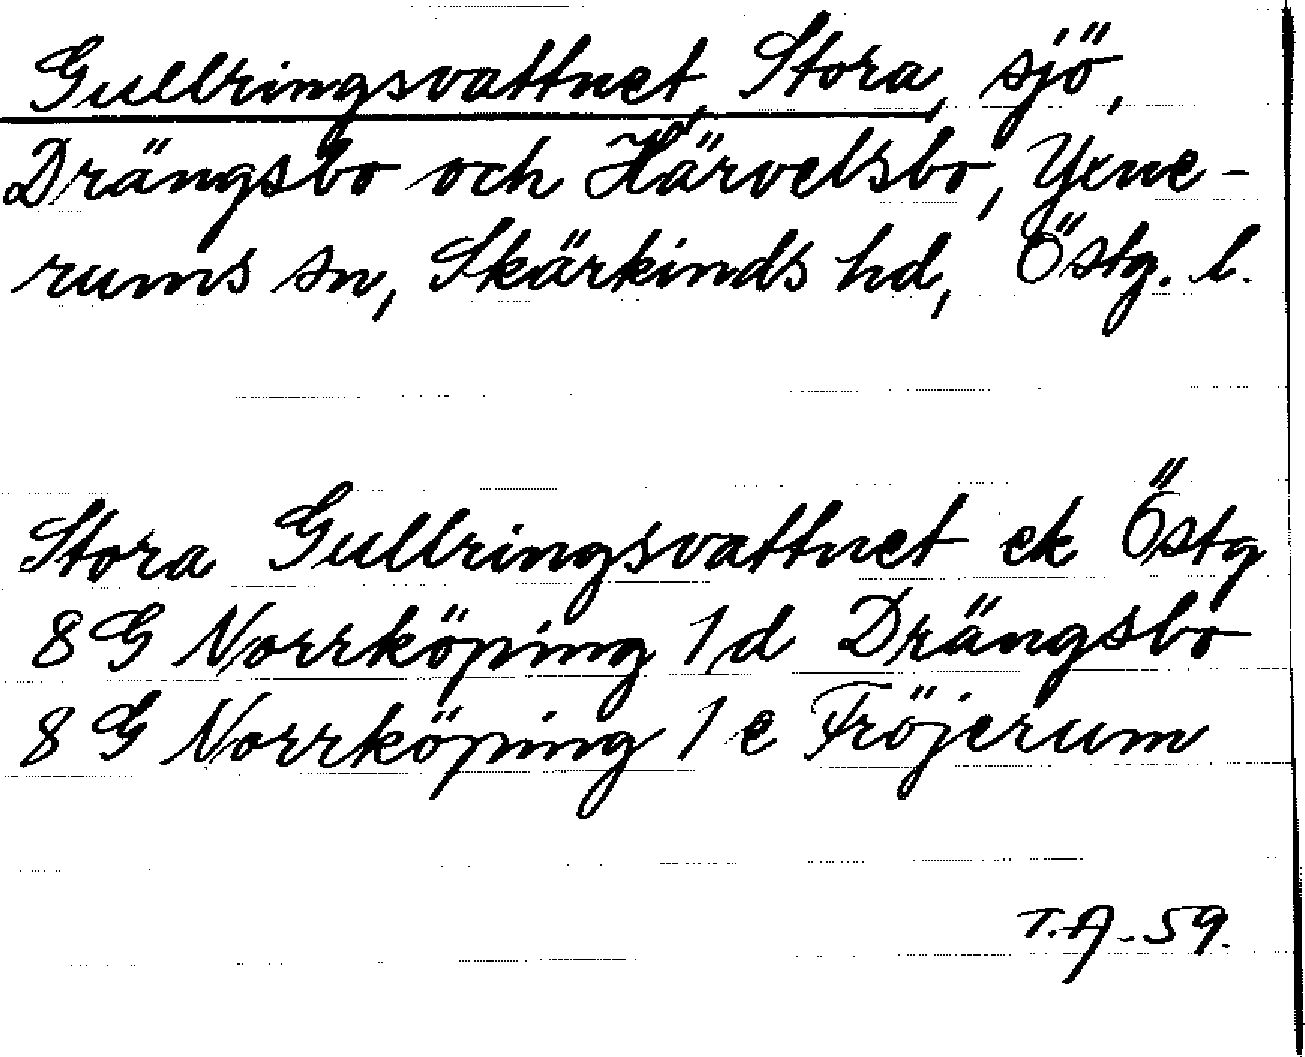 Gullringsvattnet, Stora, sjö,
Drängsbo och Härvelsbo, Yxne-
rums sn, Skärkinds hd, Östg. l.
Stora Gullringsvattnet ek Östg
8G Norrköping 1d Drängsbo
8G Norrköping 1e Fröjerum
T.A-59.